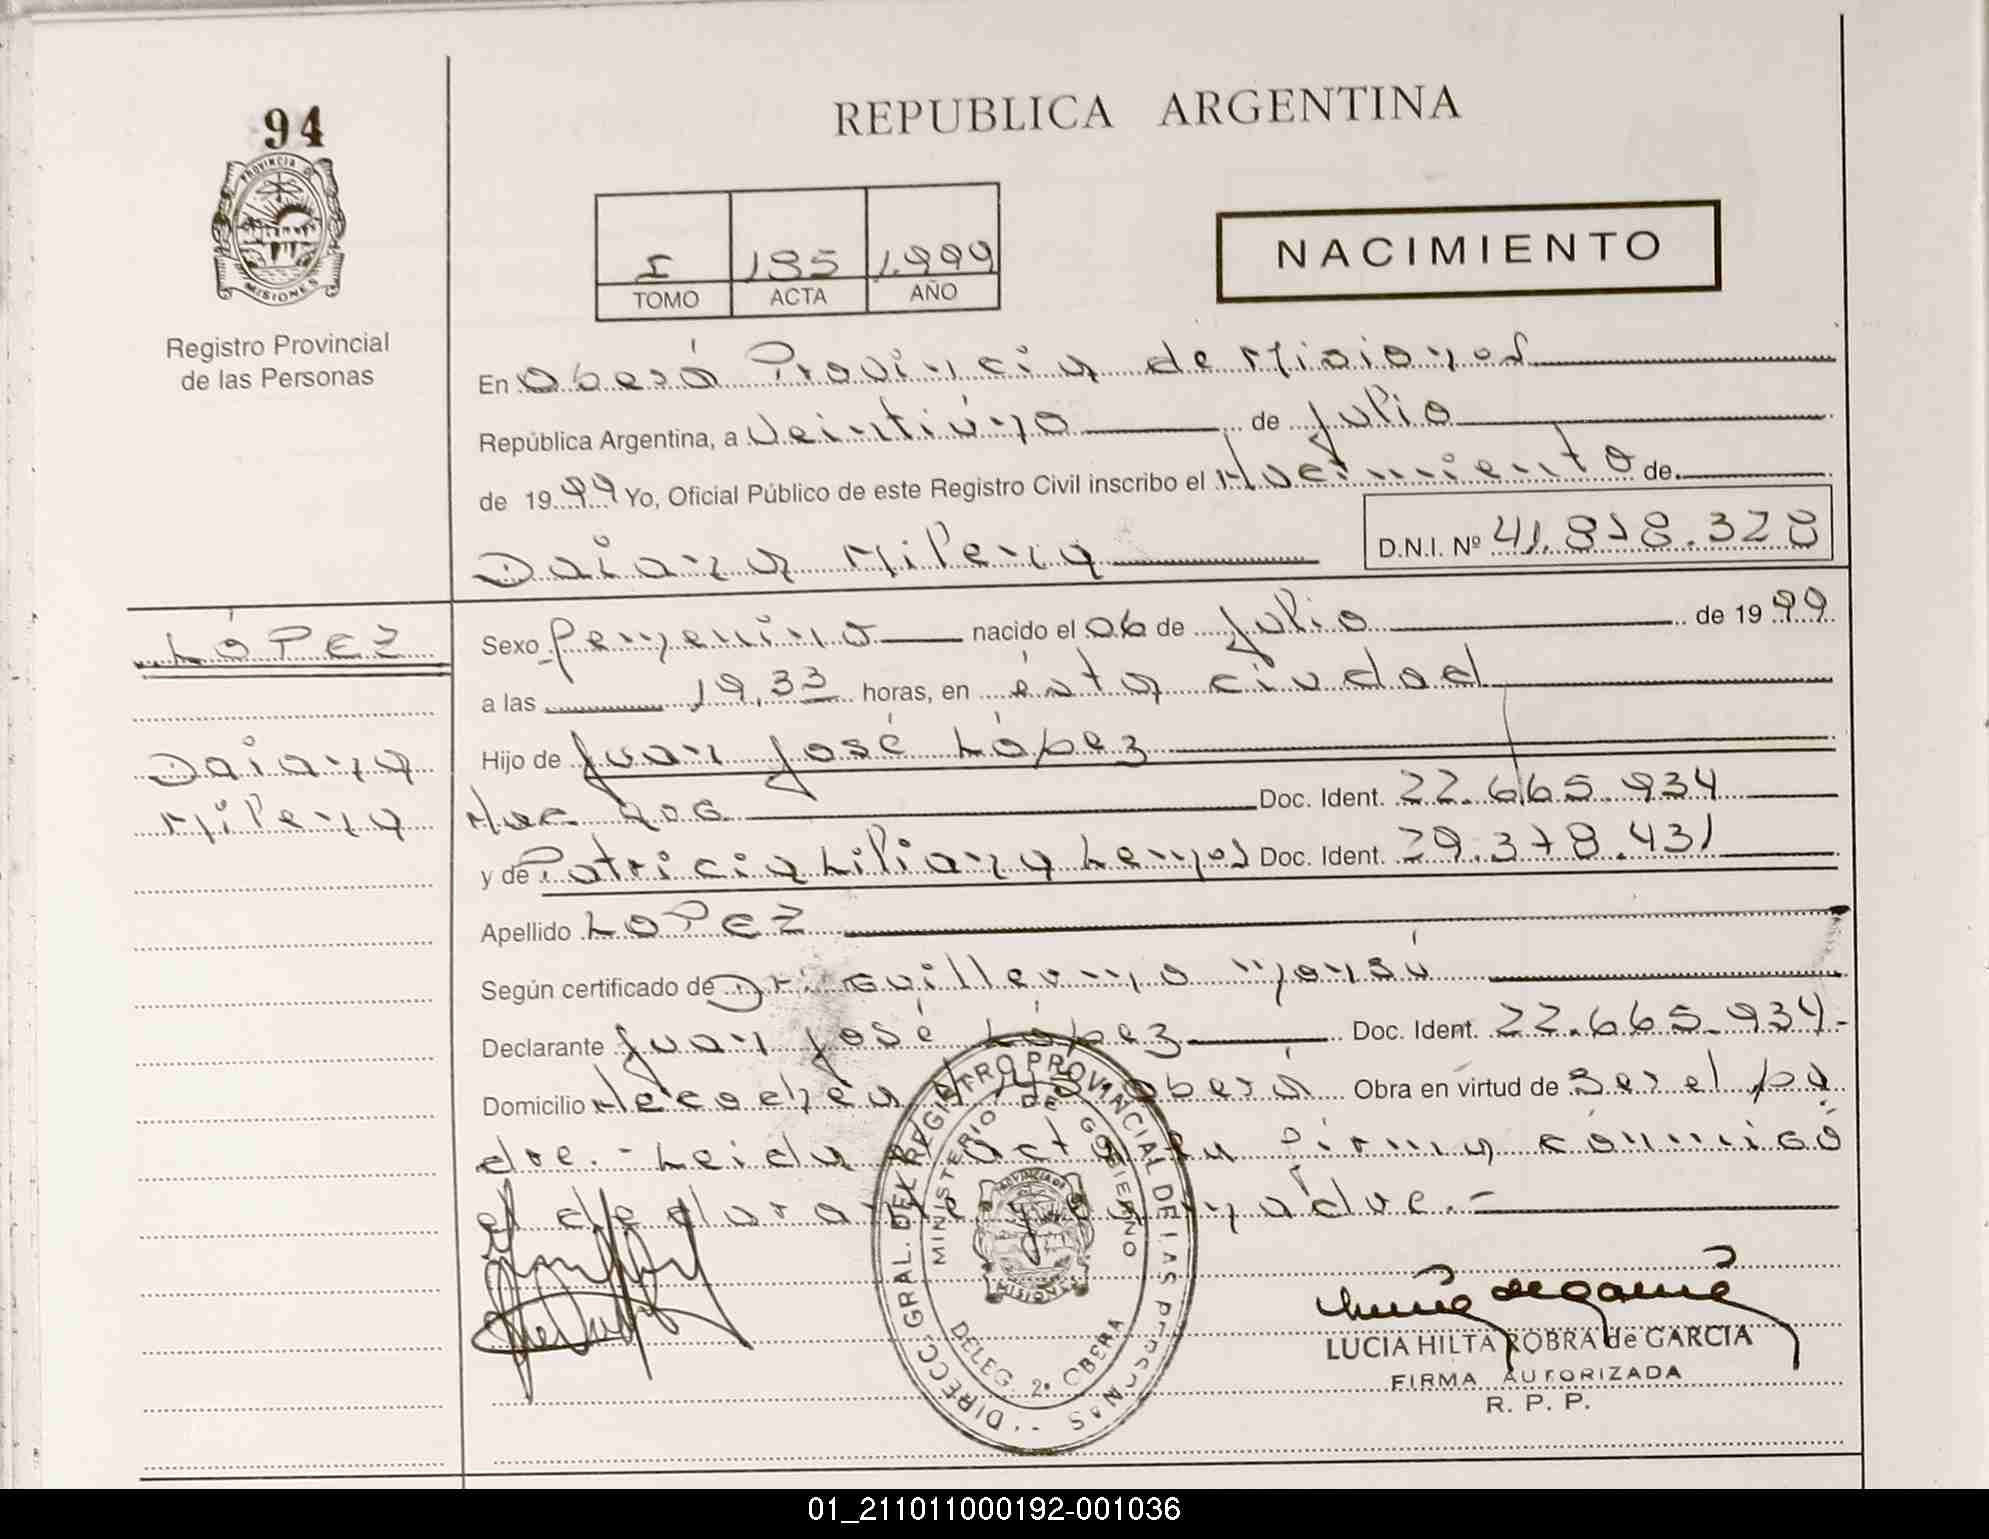 94
PROVINCIA D
MISIONES
Registro Provincial
de las Personas
REPUBLICA ARGENTINA
I 195 1.999
TOMO ACTA AÑO
NACIMIENTO
En Oberá Provincia de Misiones
República Argentina, a Veintiúno de Julio
de 1999 Yo, Oficial Público de este Registro Civil inscribo el Nacimiento de
Daiana Milena D.N.I. Nº 41.878.328
LÓPEZ
Daiana
Milena
Sexo femenino nacido el 06 de Julio de 1999
a las 19,33 horas, en ésta ciudad
Hijo de Juan José López
Doc. Ident. 22.665.934
y de Patricia Liliana Lemos Doc. Ident. 29.378.431
Apellido LOPEZ
Según certificado de Dr. Guillermo
Declarante Juan José López Doc. Ident. 22.665.934-
Domicilio Necochea Oberá Obra en virtud de ser el pa
dre.- Leida acta la firma cónmigó
el declarante y la madre.-
DIRECC. GRAL. DEL REGISTRO PROVINCIAL DE LAS PERSONAS
MINISTERIO DE GOBIERNO
MISIONES
DELEG. 2ª OBERA
LUCIA HILTA ROBRA de GARCIA
FIRMA AUTORIZADA
R. P. P.
01_211011000192-001036